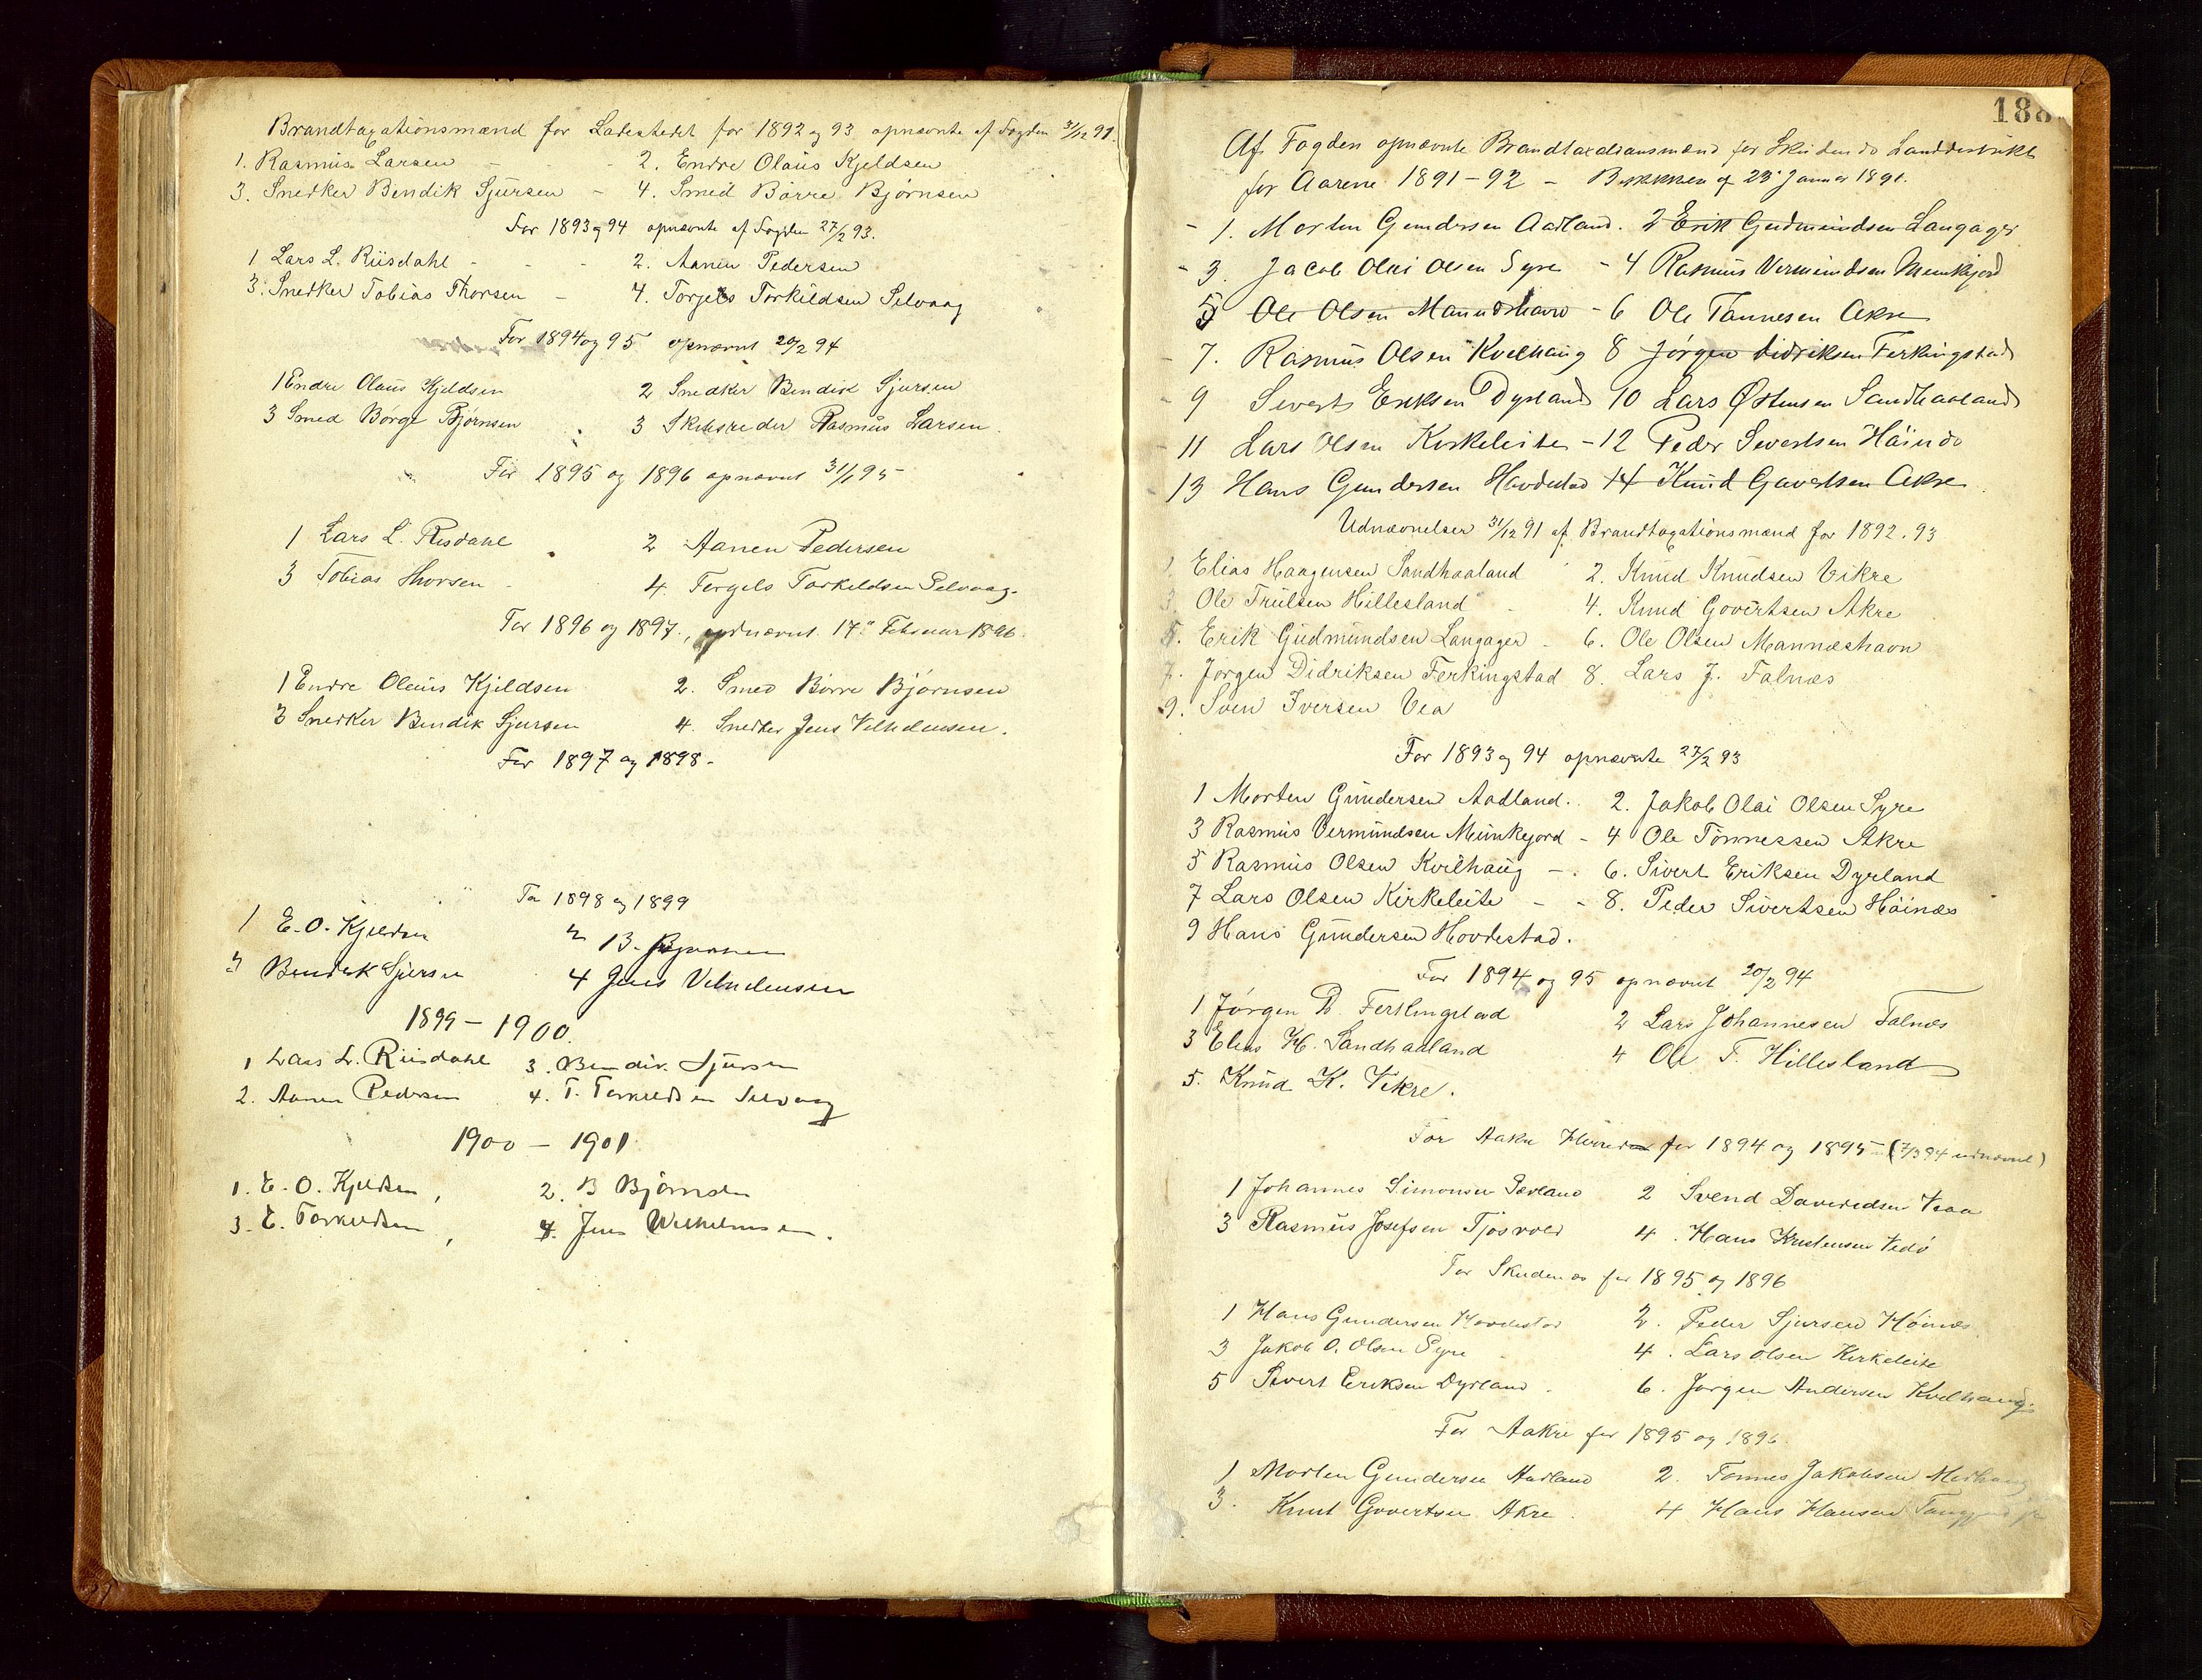 Brandtaxationsmænd for Ladestedet for 1892 og 93 opnævnte af Fogden 31/12 91.
1. Rasmus Larsen - - 2. Endre Olaus Kjeldsen
3. Snedker Bendik Sjursen - 4. Smed Børre Bjørnsen
For 1893 og 94 opnævnte af Fogden 27/2 93.
1 Lars L. Riisdahl - - - 2. Aanen Pedersen
3. Snedker Tobias Thorsen - 4. Torgels Torkildsen Selvaag
For 1894 og 95 opnævnt 20/2 94
1 Endre Olaus Kjeldsen 2 Snedker Bendik Sjursen
3 Smed Børge Bjørnsen 3 Skibsreder Rasmus Larsen.
For 1895 og 1896 opnævnt 31/1 95
1 Lars L. Risdahl 2 Aanen Pedersen
3 Tobias Thorsen - 4. Torgels Torkeldsen Selvaag.
For 1896 og 1897, opnævnt 17. Februar 1896.
1 Endre Olaus Kjeldsen 2. Smed Børre Bjørnsen
3 Snedker Bendik Sjursen 4. Snedker Jens Vilhelmsen.
For 1897 og 1898.
For 1898 og 1899
1 E. O. Kjeldsen 2 B. Bjørnsen
3 Bendik Sjursen 4 Jens Vilhelmsen
1899 - 1900.
1 Lars L. Riisdahl 3. Bendik Sjursen
2. Aanen Pedersen 4. T. Torkeldsen Selvaag
1900 - 1901
1. E. O. Kjeldsen, 2. B Bjørnsen
3. T. Torkeldsen, 4. Jens Wilhelmsen.
188
Af Fogden opnævnte Brandtaxationsmænd for Skudenæs Landdistrikt
for Aarene 1891-92 - af 23 Januar 1891.
- 1. Morten Gundersen Aadland. 2 Erik Gudmundsen Langager
- 3. Jacob Olai Olsen Syre - 4 Rasmus Vermundsen Munkejord
5 Ole Olsen Mannæshavn - 6 Ole Tønnesen Akre
- 7. Rasmus Olsen Kvelhaug 8 Jørgen Didriksen Ferkingstad
- 9 Sivert Eriksen Dyrland 10 Lars Østensen Sandhaaland
- 11 Lars Olsen Kirkeleite - 12 Peder Sivertsen Høinæs
- 13 Hans Gundersen Hovdestad 14 Knud Govertsen Akre
Udnævnelser 31/12 91 af Brandtaxationsmænd for 1892.93
1. Elias Haagensen Sandhaaland 2. Knud Knudsen Vikre
3. Ole Trulsen Hillesland - 4. Knud Govertsen Akre
5. Erik Gudmundsen Langager - 6. Ole Olsen Mannæshavn
7. Jørgen Didriksen Ferkingstad 8. Lars J. Falnæs
9. Sven Iversen Vea
For 1893 og 94 opnævnte 27/2 93
1 Morten Gundersen Aadland. 2. Jakob Olai Olsen Syre
3 Rasmus Vermundsen Munkejord - 4 Ole Tønnessen Akre
5 Rasmus Olsen Kvilhaug - . 6. Sivert Eriksen Dyrland
7 Lars Olsen Kirkeleite - - 8. Peder Sivertsen Høinæs
9 Hans Gundersen Hovdestad.
For 1894 og 95 opnævnt 20/2 94
1 Jørgen D. Ferkingstad 2 Lars Johannesen Falnæs
3 Elias H. Sandhaaland 4 Ole T. Hillesland
5. Knud K. Vikre.
For Aakre Herred for 1894 og 1895 - (7/3 94 udnævnt)
1 Johannes Simonsen Sævland 2 Svend Davidsen Veaa
3 Rasmus Josefsen Tjøsvold 4. Hans Kristensen Vedø
For Skudenæs for 1895 og 1896
1 Hans Gundersen Hovdestad 2. Peder Sjursen Høinæs
3 Jakob O. Olsen Syre 4. Lars Olsen Kirkeleite
5 Sivert Eriksen Dyrland. 6. Jørgen Andersen Kvelhaug.
For Aakre for 1895 og 1896.
1 Morten Gundersen Aadland 2. Tønnes Jakobsen
3. Knut Govertsen Akre. 4 Hans Hansen